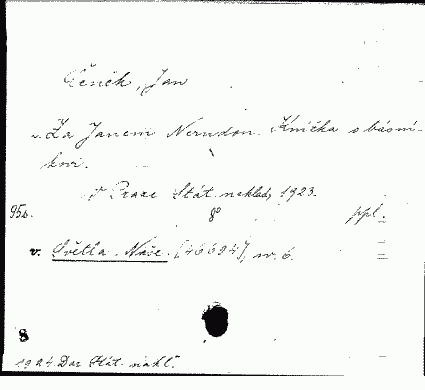 Čeněk, Jan
Za Janem Nerudou. Knížka o básní-
kovi.
V Praze Stát. naklad. 1923.
95s. 8° ppl.
v. Světla Naše. (46694), sv. 6.
8
1924. Dar Stát. nakl.